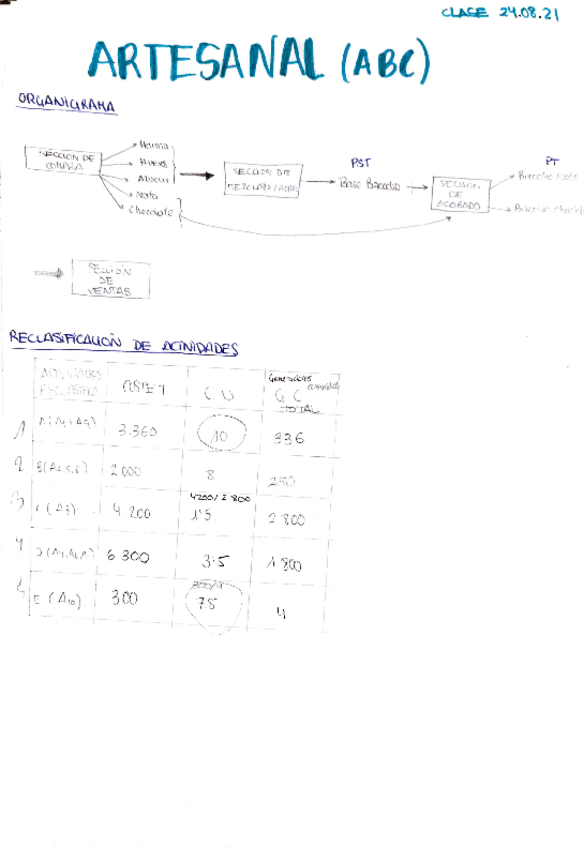 CLASE 24.08.21
ARTESANAL (ABC)
ORGANIGRAMA
SECCIÓN DE COMPRA
Harina
Huevos
Nata
Chocolate
SECCIÓN DE
PST
Base Bizcocho
SECCIÓN DE ACABADO
PT
Bizcocho Nata
Bizcocho Chocolate
SECCIÓN DE VENTAS
RECLASIFICACIÓN DE ACTIVIDADES
ACTIVIDADES RECLASIFICA
COSTE T
CU
Generadores
GC
TOTAL
1
3.360
10
336
2
2000
8
250
3
C (A3)
4 200
4200/2 800
1'5
2 800
4
6 300
3.5
1 800
5
E (A10)
300
75
4